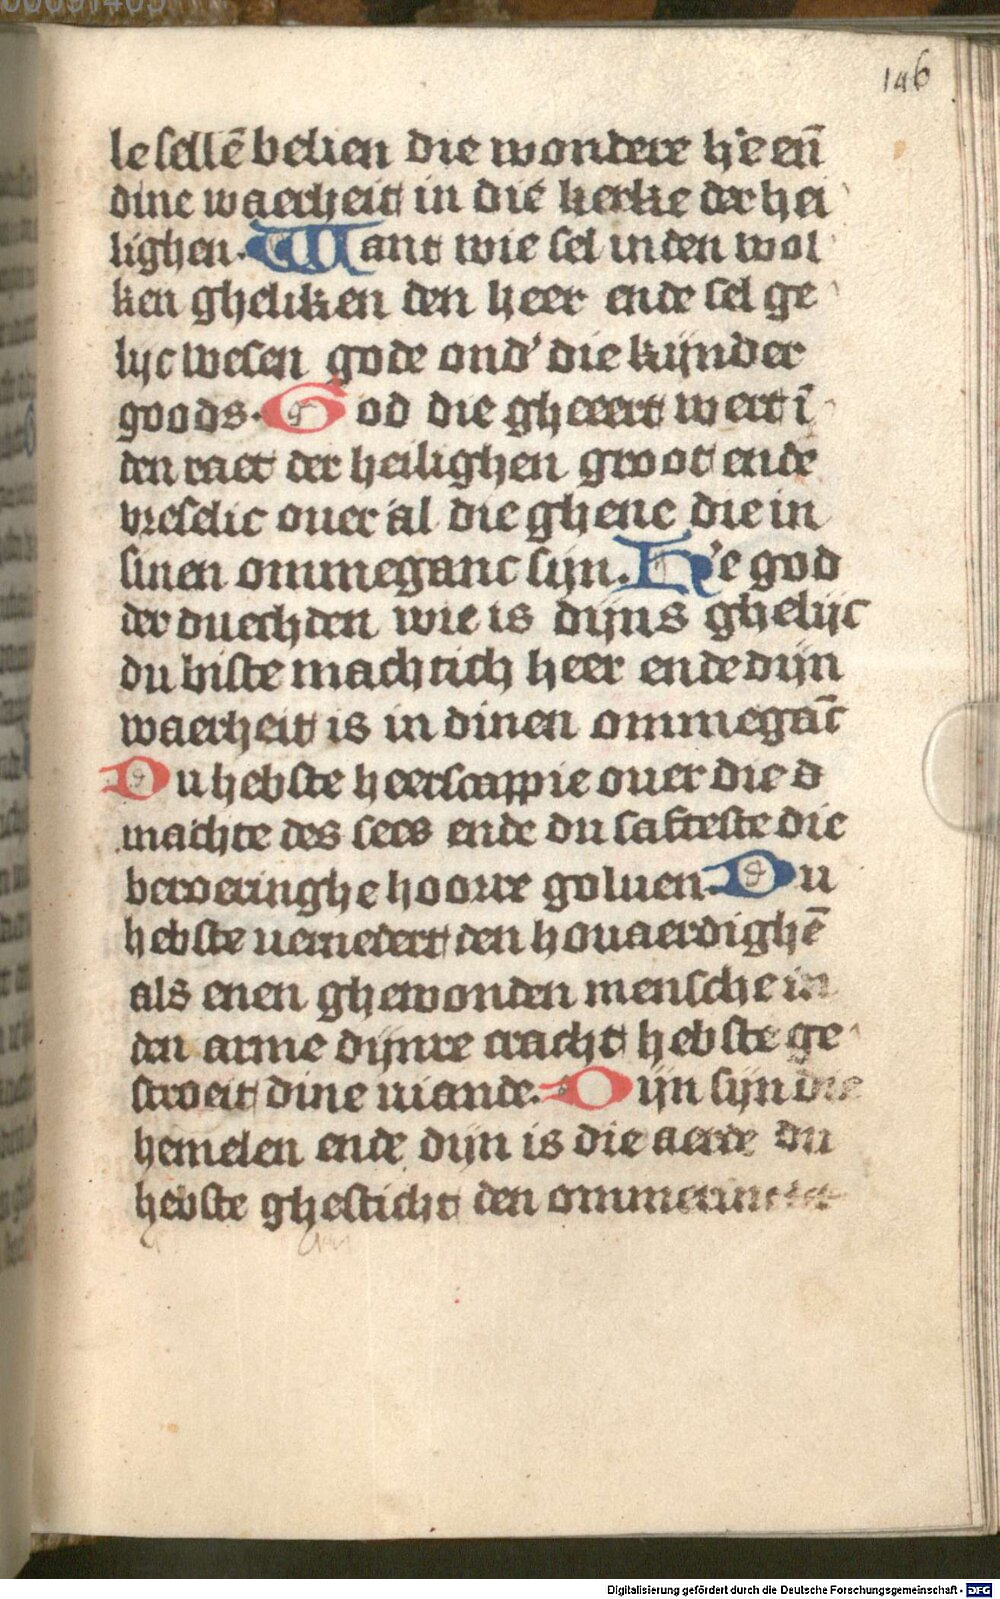 146
le sellē belien die wondere h'e eñ
dine waerheit in die kerke der hei
lighen. Want wie sel in den wol
ken gheliken den heer ende sel ge
lijc wesen gode ond' die kijnder
goods. God die gheeert wert ī
den raet der heilighen groot ende
vreselic ouer al die ghene die in
sinen ommeganc sijn. H'e god
der duechden wie is dijns ghelijc
du biste machtich heer ende dijn
waerheit is in dinen ommegāc
Du hebste heerscappie ouer die d
machte des sees ende du safteste die
beroeringhe hoorre goluen. Du
hebste vernedert den houaerdighē
als enen ghewonden mensche in
den arme dijnre cracht hebste ge
stroeit dine viande. Dijn sijn die
hemelen ende dijn is die aerde du
hebste ghesticht den
Digitalisierung gefördert durch die Deutsche Forschungsgemeinschaft - DFG